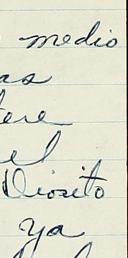 medio
as
tere
el
Diosito
ya